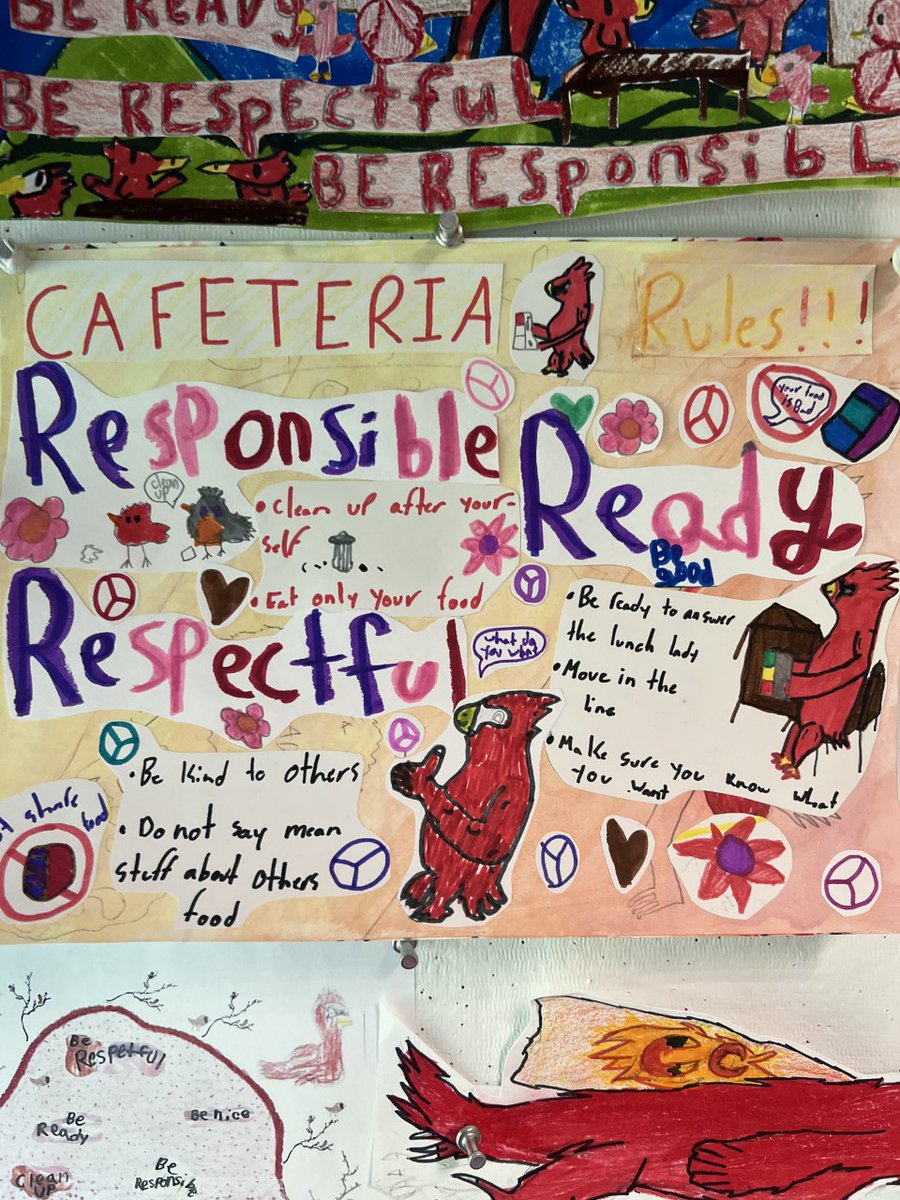 BE READY
BE RESPECTFUL
BE RESPONSIBL
CAFETERIA
Rules!!!
Responsible
Clean up
• Clean up after your-
self
• Eat only your food
Your food
is Bad
Ready
Be
good
• Be ready to answer
the lunch lady
• Move in the
line
• Make sure you know what
you want
Respectful
what do
you want
• Be kind to others
• Do not say mean
stuff about others
food
share
food
Be
Respectful
Be
Ready
Be nice
Clean
UP
Be
Responsible